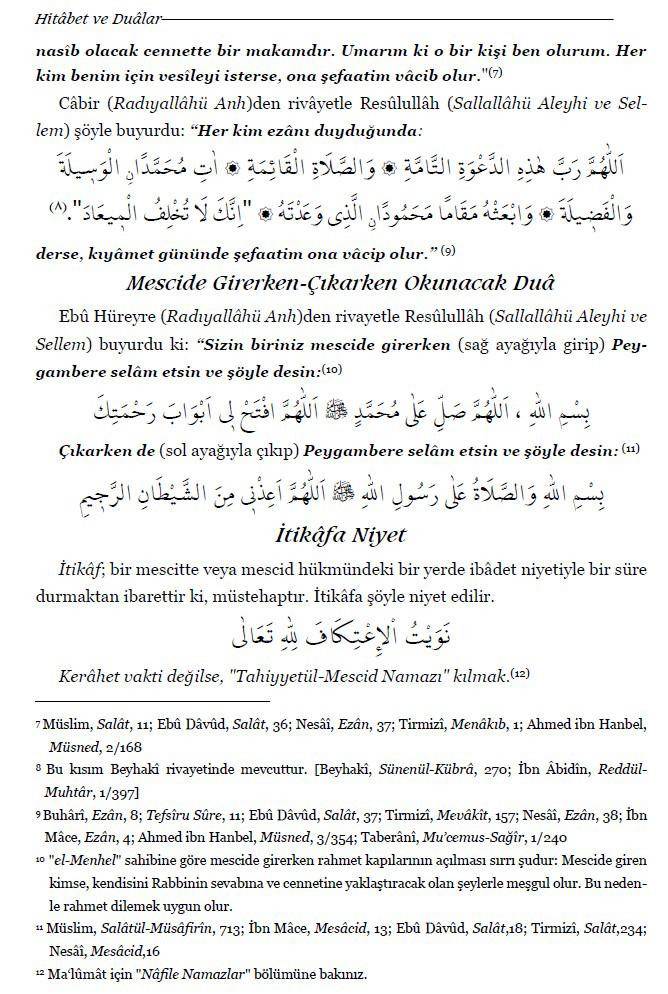 Hitâbet ve Duâlar
nasîb olacak cennette bir makamdır. Umarım ki o bir kişi ben olurum. Her
kim benim için vesîleyi isterse, ona şefaatim vâcib olur."(7)
Câbir (Radıyallâhü Anh)den rivâyetle Resûlullâh (Sallallâhü Aleyhi ve Sel-
lem) şöyle buyurdu: “Her kim ezânı duyduğunda:
اَللّٰهُمَّ رَبَّ هٰذِهِ الدَّعْوَةِ التَّامَّةِ ۞ وَالصَّلَاةِ الْقَائِمَةِ ۞ اٰتِ مُحَمَّدًانِ الْوَسٖيلَةَ
وَالْفَضٖيلَةَ ۞ وَابْعَثْهُ مَقَامًا مَحْمُودًانِ الَّذٖى وَعَدْتَهُ ۞ "اِنَّكَ لَا تُخْلِفُ الْمٖيعَادَ".(٨)
derse, kıyâmet gününde şefaatim ona vâcip olur.” (9)
Mescide Girerken-Çıkarken Okunacak Duâ
Ebû Hüreyre (Radıyallâhü Anh)den rivayetle Resûlullâh (Sallallâhü Aleyhi ve
Sellem) buyurdu ki: “Sizin biriniz mescide girerken (sağ ayağıyla girip) Pey-
gambere selâm etsin ve şöyle desin:(10)
بِسْمِ اللّٰهِ ، اَللّٰهُمَّ صَلِّ عَلٰى مُحَمَّدٍ ﷺ اَللّٰهُمَّ افْتَحْ لٖى اَبْوَابَ رَحْمَتِكَ
Çıkarken de (sol ayağıyla çıkıp) Peygambere selâm etsin ve şöyle desin: (11)
بِسْمِ اللّٰهِ وَالصَّلَاةُ عَلٰى رَسُولِ اللّٰهِ ﷺ اَللّٰهُمَّ اَعِذْنٖى مِنَ الشَّيْطَانِ الرَّجٖيمِ
İtikâfa Niyet
İtikâf; bir mescitte veya mescid hükmündeki bir yerde ibâdet niyetiyle bir süre
durmaktan ibarettir ki, müstehaptır. İtikâfa şöyle niyet edilir.
نَوَيْتُ الْاِعْتِكَافَ لِلّٰهِ تَعَالٰى
Kerâhet vakti değilse, "Tahiyyetül-Mescid Namazı" kılmak.(12)
7 Müslim, Salât, 11; Ebû Dâvûd, Salât, 36; Nesâî, Ezân, 37; Tirmizî, Menâkıb, 1; Ahmed ibn Hanbel,
Müsned, 2/168
8 Bu kısım Beyhakî rivayetinde mevcuttur. [Beyhakî, Sünenül-Kübrâ, 270; İbn Âbidîn, Reddül-
Muhtâr, 1/397]
9 Buhârî, Ezân, 8; Tefsîru Sûre, 11; Ebû Dâvûd, Salât, 37; Tirmizî, Mevâkît, 157; Nesâî, Ezân, 38; İbn
Mâce, Ezân, 4; Ahmed ibn Hanbel, Müsned, 3/354; Taberânî, Mu’cemus-Sağîr, 1/240
10 "el-Menhel" sahibine göre mescide girerken rahmet kapılarının açılması sırrı şudur: Mescide giren
kimse, kendisini Rabbinin sevabına ve cennetine yaklaştıracak olan şeylerle meşgul olur. Bu neden-
le rahmet dilemek uygun olur.
11 Müslim, Salâtül-Müsâfirîn, 713; İbn Mâce, Mesâcid, 13; Ebû Dâvûd, Salât,18; Tirmizî, Salât,234;
Nesâî, Mesâcid,16
12 Ma‘lûmât için "Nâfile Namazlar" bölümüne bakınız.